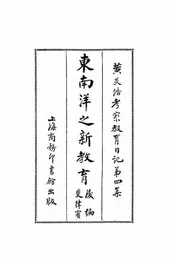 黃炎培考察教育日記第四集
東南洋之新教育
後編
上海商務印書館出版